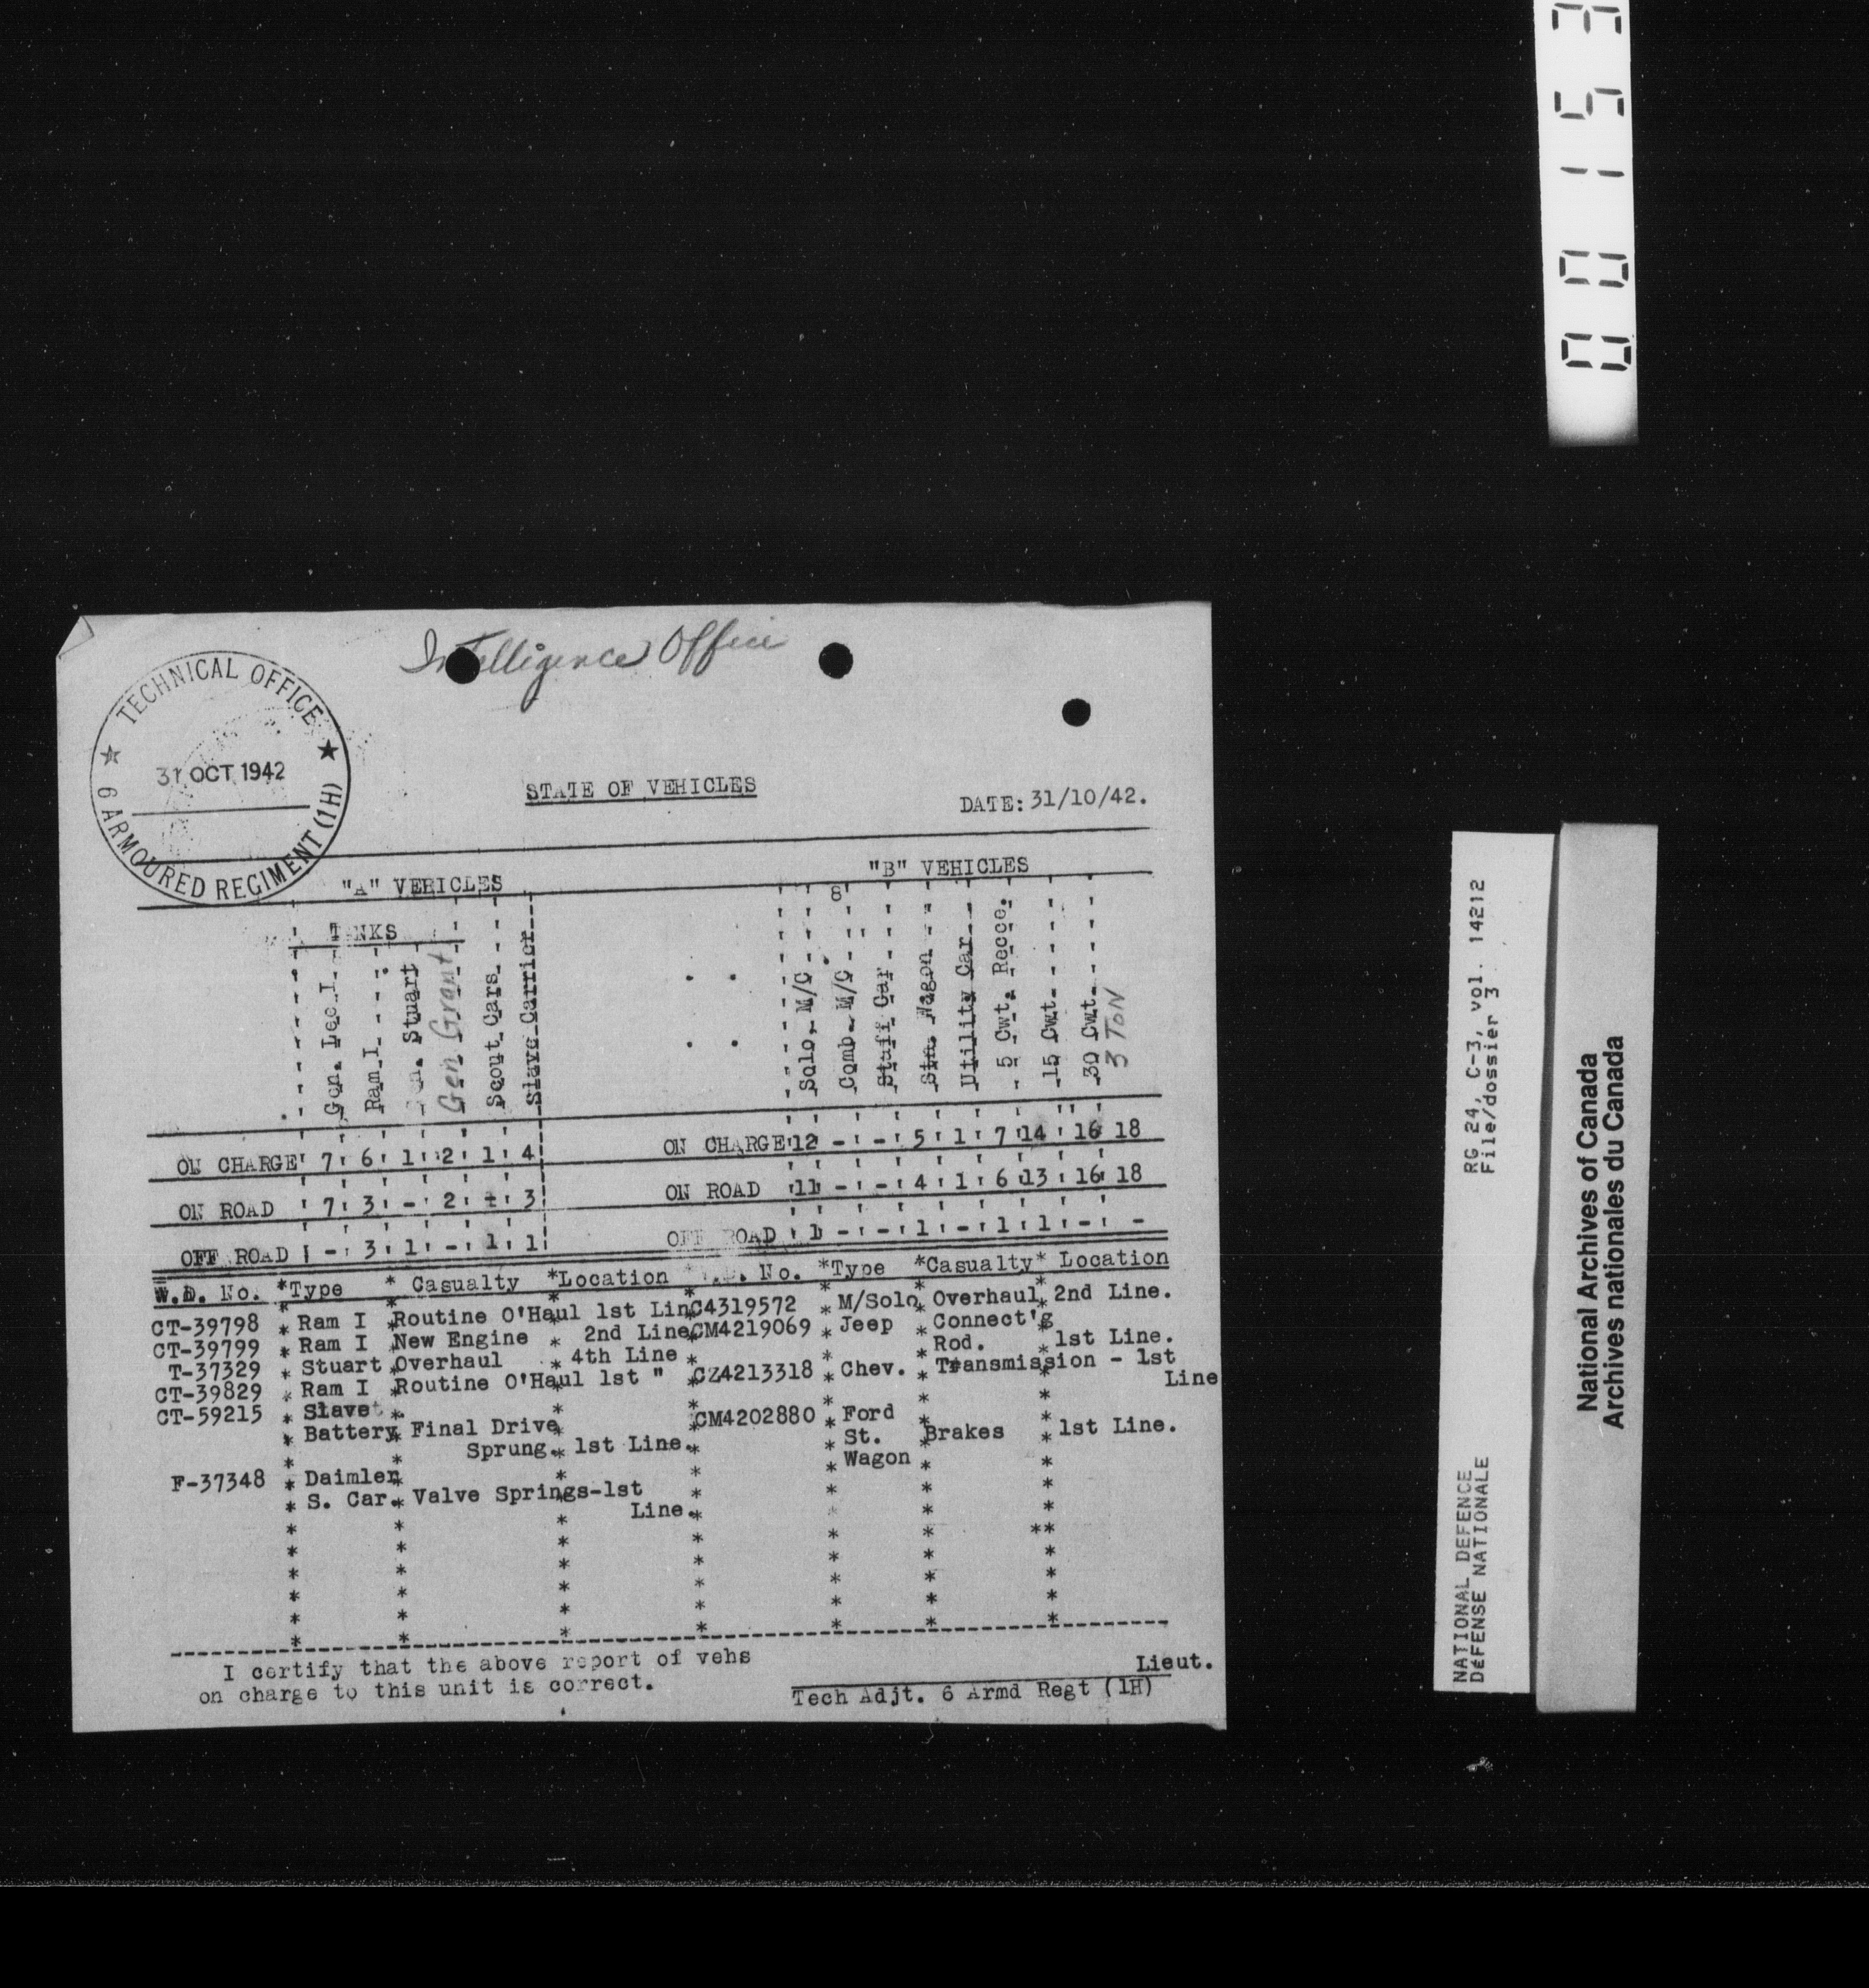 00153
Intelligence Office
TECHNICAL OFFICE
31 OCT 1942
6 ARMOURED REGIMENT (1H)
STATE OF VEHICLES
DATE: 31/10/42.
"A" VEHICLES
"B" VEHICLES
8
T NKS
Gen. Lee I
Ram I
Stuart
Gen Grant
Scout Cars
Slave Carrier
Solo. M/C
Comb. M/C
Staff Car
Stn. Wagon
Utility Car
5 Cwt. Recce.
15 Cwt.
30 Cwt.
3 TON
ON CHARGE 7 6 1 2 1 4 ON CHARGE 12 - - 5 1 7 14 16 18
ON ROAD 7 3 - 2 1 3 ON ROAD 11 - - 4 1 6 13 16 18
OFF ROAD - 3 1 - 1 1 OFF ROAD 1 - - 1 - 1 1 - -
W.D. No. *Type * Casualty *Location * No. *Type *Casualty* Location
CT-39798 * Ram I Routine O'Haul 1st Line C4319572 * M/Solo * Overhaul * 2nd Line.
CT-39799 * Ram I New Engine * 2nd Line CM4219069 * Jeep * Connect'g
T-37329 * Stuart Overhaul * 4th Line * Rod. * 1st Line.
CT-39829 * Ram I Routine O'Haul 1st " CZ4213318 * Chev. * Transmission - 1st
Line
CT-59215 * Slave
Battery Final Drive CM4202880 * Ford
Sprung. * 1st Line. St. Brakes * 1st Line.
Wagon
F-37348 * Daimler
S. Car. Valve Springs-1st
Line.
I certify that the above report of vehs
on charge to this unit is correct.
Lieut.
Tech Adjt. 6 Armd Regt (1H)
RG 24, C-3, vol. 14212
File/dossier 3
NATIONAL DEFENCE
DÉFENSE NATIONALE
National Archives of Canada
Archives nationales du Canada